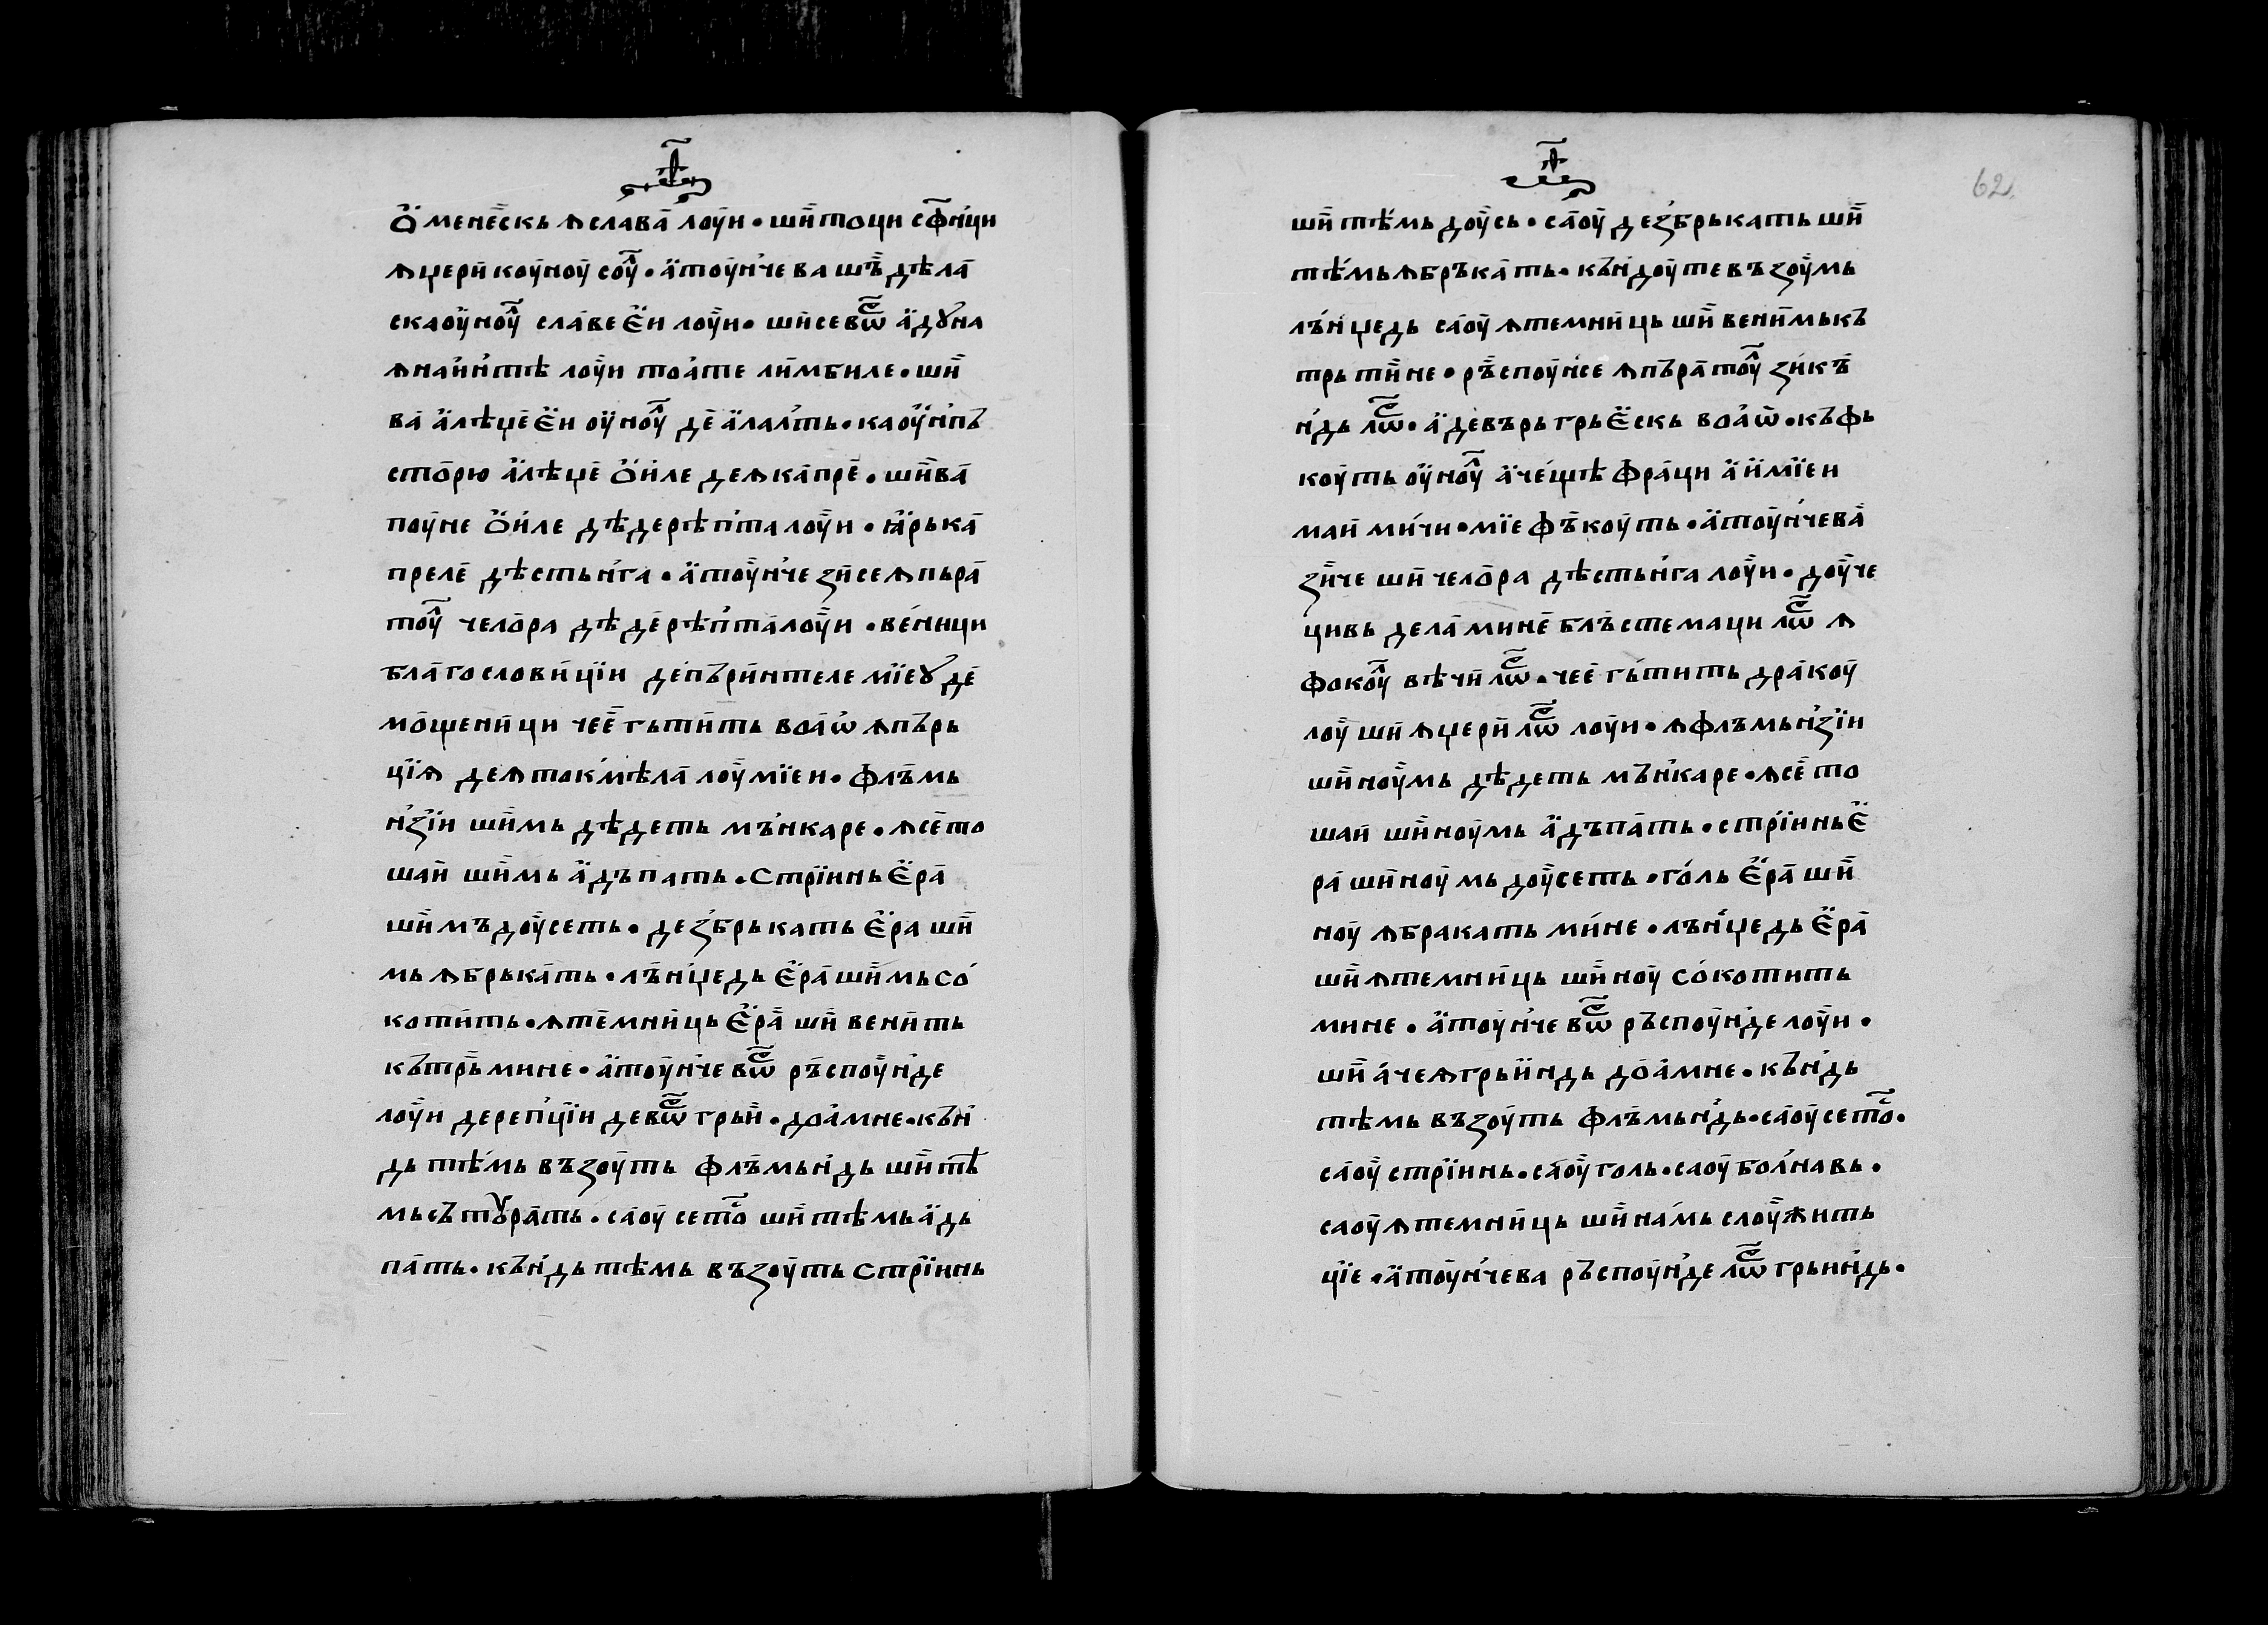 ѻ҆менескь ꙟславꙋ лоуи · ши тоци сфн҃ци
ꙟцери коуноу соу҇л · атоунче ва шѣдѣ ла
скаоуноу҇л славееи лоуи · ши се вѡ҇р адꙋна
ꙟнаинтѣ лоуи тоате лимбиле · ши
ва алѣџе еи оуноу҇л де алалть · ка оунпъ
сторю алѣџе ѻиле де ꙟкапре · ши ва
поуне ѻиле дѣдерѣпта лоуи · ꙗрь ка
преле дѣстьнга · атоунче зисе ꙟпьра
тоу҇л челора дѣдерѣпта лоуи · веници
благословиции де пъринтеле мїеꙋ де
мощеници чее гьтить воаѡ ꙟпърь
цїꙗ де ꙟтокмѣла лоумїеи · флъмь
нзїи ши мь дѣдеть мънкаре · ꙟсето
шаи ши мь адъпать · стрїинь ера
ши мъ доусеть · дезбрькать ера ши
мь ꙟбрькать · лънџедь ера ши мь со
котить · ꙟтемниць ера ши венить
кътрь мине · атоунче вѡ҇р ръспоунде
лоуи дерепции де вѡ҇р грьи · доамне · кън
дь тѣмь възоуть флъмьндь ши тѣ
мь сътꙋрать · саоу сето҇с ши тѣмь адь
пать · къндь тѣмь възоуть стрїинь
62
ши тѣмь доусь · саоу дезбрькать ши
тѣмь ꙟбръкать · къндоу те възоумь
лънџедь саоу ꙟтемниць ши венимь къ
трь тине · ръспоунсе ꙟпъратоу҇л зикъ
ндь лѡ҇р · адевърь грьескь воаѡ · къ фь
коуть оуноу҇л ачещѣ фраци аи мїеи
маи мичи · мїе фъкоуть · атоунче ва
зиче ши челора дѣстьнга лоуи · доуче
цивь дела мине блъстемаци лѡ҇р ꙟ
фокоу҇л вѣчи лѡ҇р · чее гьтить дракоу
лоу ши ꙟцери лѡ҇р лоуи · ꙟфлъмьнзїи
ши ноумь дѣдеть мънкаре · ꙟсето
шаи ши ноумь адъпать · стрїинь е
ра ши ноу мь доусеть · голь ера ши
ноу ꙟбракать мине · лънџедь ера
ши ꙟтемниць ши ноу сокотить
мине · атоунче вѡ҇р ръспоунде лоуи ·
ши аче ꙟгрьиндь доамне · къндь
тѣмь възоуть флъмьндь · саоу сето҇с ·
саоу стрїинь · саоу голь · саоу болнавь ·
саоу ꙟтемниць ши намь слоужить
цїе · атоунче ва ръспоунде лѡ҇р грьиндь ·